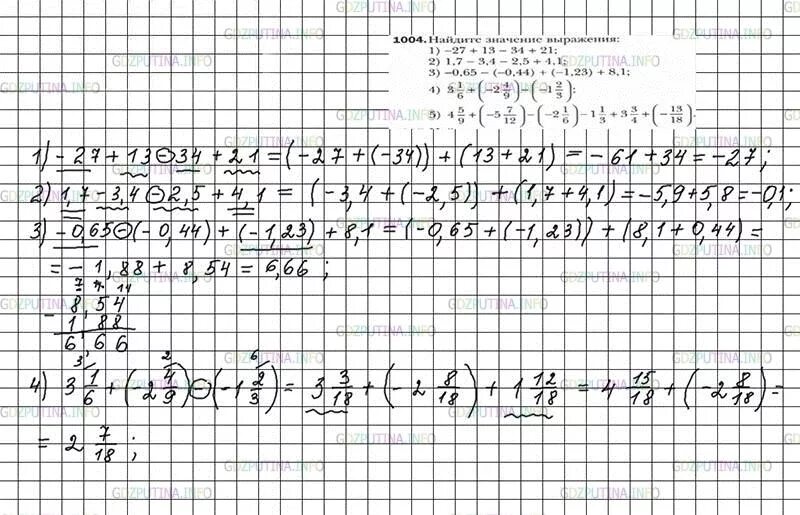 1004. Найдите значение выражения:
1) −27 + 13 − 34 + 21;
2) 1,7 − 3,4 − 2,5 + 4,1;
3) −0,65 − (−0,44) + (−1,23) + 8,1;
4) 3 1/6 + (−2 4/9) − (−1 2/3);
5) 4 5/9 + (−5 7/12) − (−2 1/6) − 1 1/3 + 3 3/4 + (−13/18).
1) −27 + 13 ⊖ 34 + 21 = (−27 + (−34)) + (13 + 21) = −61 + 34 = −27;
2) 1,7 − 3,4 ⊖ 2,5 + 4,1 = (−3,4 + (−2,5)) + (1,7 + 4,1) = −5,9 + 5,8 = −0,1;
3) −0,65 ⊖ (−0,44) + (−1,23) + 8,1 = (−0,65 + (−1,23)) + (8,1 + 0,44) =
= −1,88 + 8,54 = 6,66;
− 8,54
1,88
6,66
4) 3 1/6 + (−2 4/9) ⊖ (−1 2/3) = 3 3/18 + (−2 8/18) + 1 12/18 = 4 15/18 + (−2 8/18) =
= 2 7/18;
GDZPUTINA.INFO